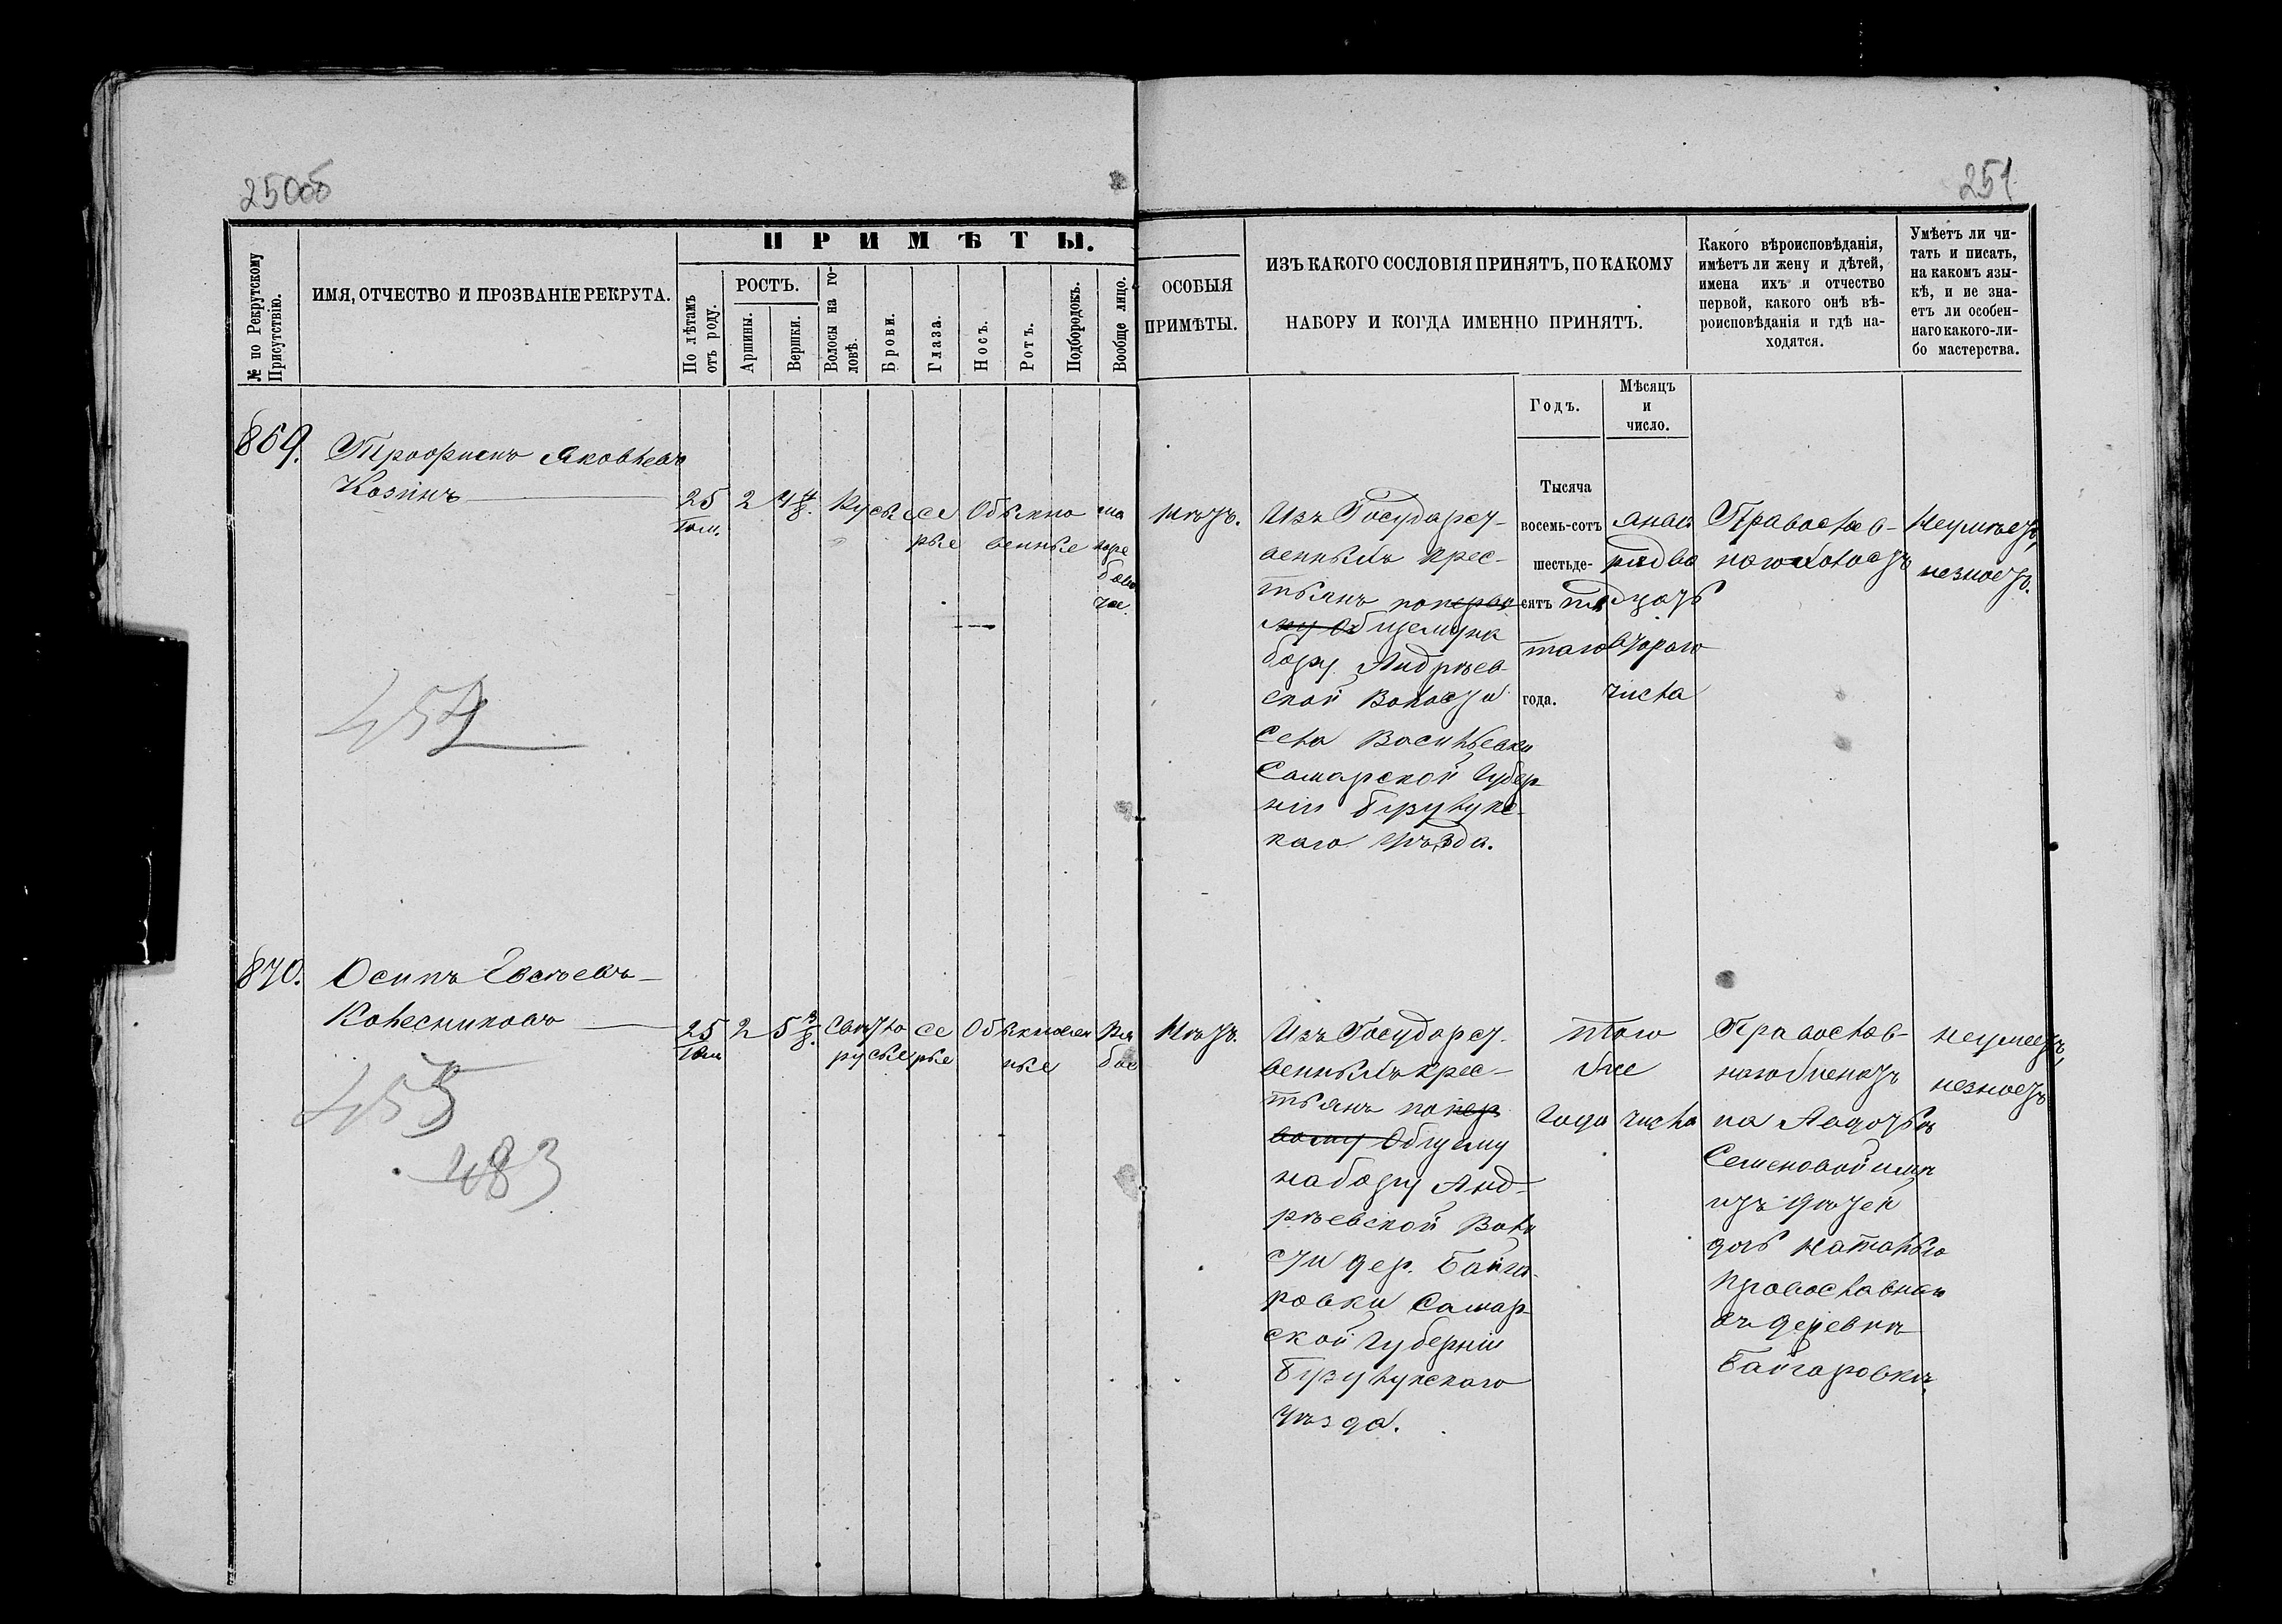 250об
251
№ по Рекрутскому Присутствію.
ИМЯ, ОТЧЕСТВО И ПРОЗВАНІЕ РЕКРУТА.
ПРИМѢТЫ.
По лѣтамъ отъ роду.
РОСТЪ.
Аршины.
Вершки.
Волосы на головѣ.
Брови.
Глаза.
Носъ.
Ротъ.
Подбородокъ.
Вообще лицо.
ОСОБЫЯ
ПРИМѢТЫ.
ИЗЪ КАКОГО СОСЛОВІЯ ПРИНЯТЪ, ПО КАКОМУ
НАБОРУ И КОГДА ИМЕННО ПРИНЯТЪ.
Годъ.
Мѣсяцъ
и
число.
Какого вѣроисповѣданія,
имѣетъ ли жену и дѣтей,
имена ихъ и отчество
первой, какого онѣ вѣ-
роисповѣданія и гдѣ на-
ходятся.
Умѣетъ ли чи-
тать и писать,
на какомъ язы-
кѣ, и не зна-
етъ ли особен-
наго какого-ли-
бо мастерства.
869.
Трофимъ Яковлевъ
Козинъ
25
2
4 4/8.
Русые
се
рые
Обыкно
венные
Нѣтъ.
Изъ Государст-
венныхъ крес-
тьянъ по перво
му Общему на
бору Андреев-
ской Волости
Села Васильевки
Самарской Губер
ніи Бузулукс-
каго уѣзда.
Тысяча
восемь-сотъ
шестьде-
сятъ
таго
года.
двад
цать
втораго
числа
Православ-
наго холостъ
Неумѣетъ,
незнаетъ.
454
870.
Осипъ Евсѣевъ
Колесниковъ
25
2
5 3/8.
Свѣтло
русые
се
рые
Обыкновен
ные
Ря
бое
Нѣтъ.
Изъ Государст-
венныхъ крес-
тьянъ по пер
вому Общему
набору Анд-
рѣевской Воло
сти дер. Байга-
ровки Самар-
ской Губерніи
Бузулукскаго
уѣзда.
того
же
Года
числа
Православ-
наго женатъ
на
Семеновой имѣ
етъ дѣтей
дочь Наталью
православная
въ деревнѣ
Байгаровкѣ.
неумеетъ,
незнаетъ
455
483